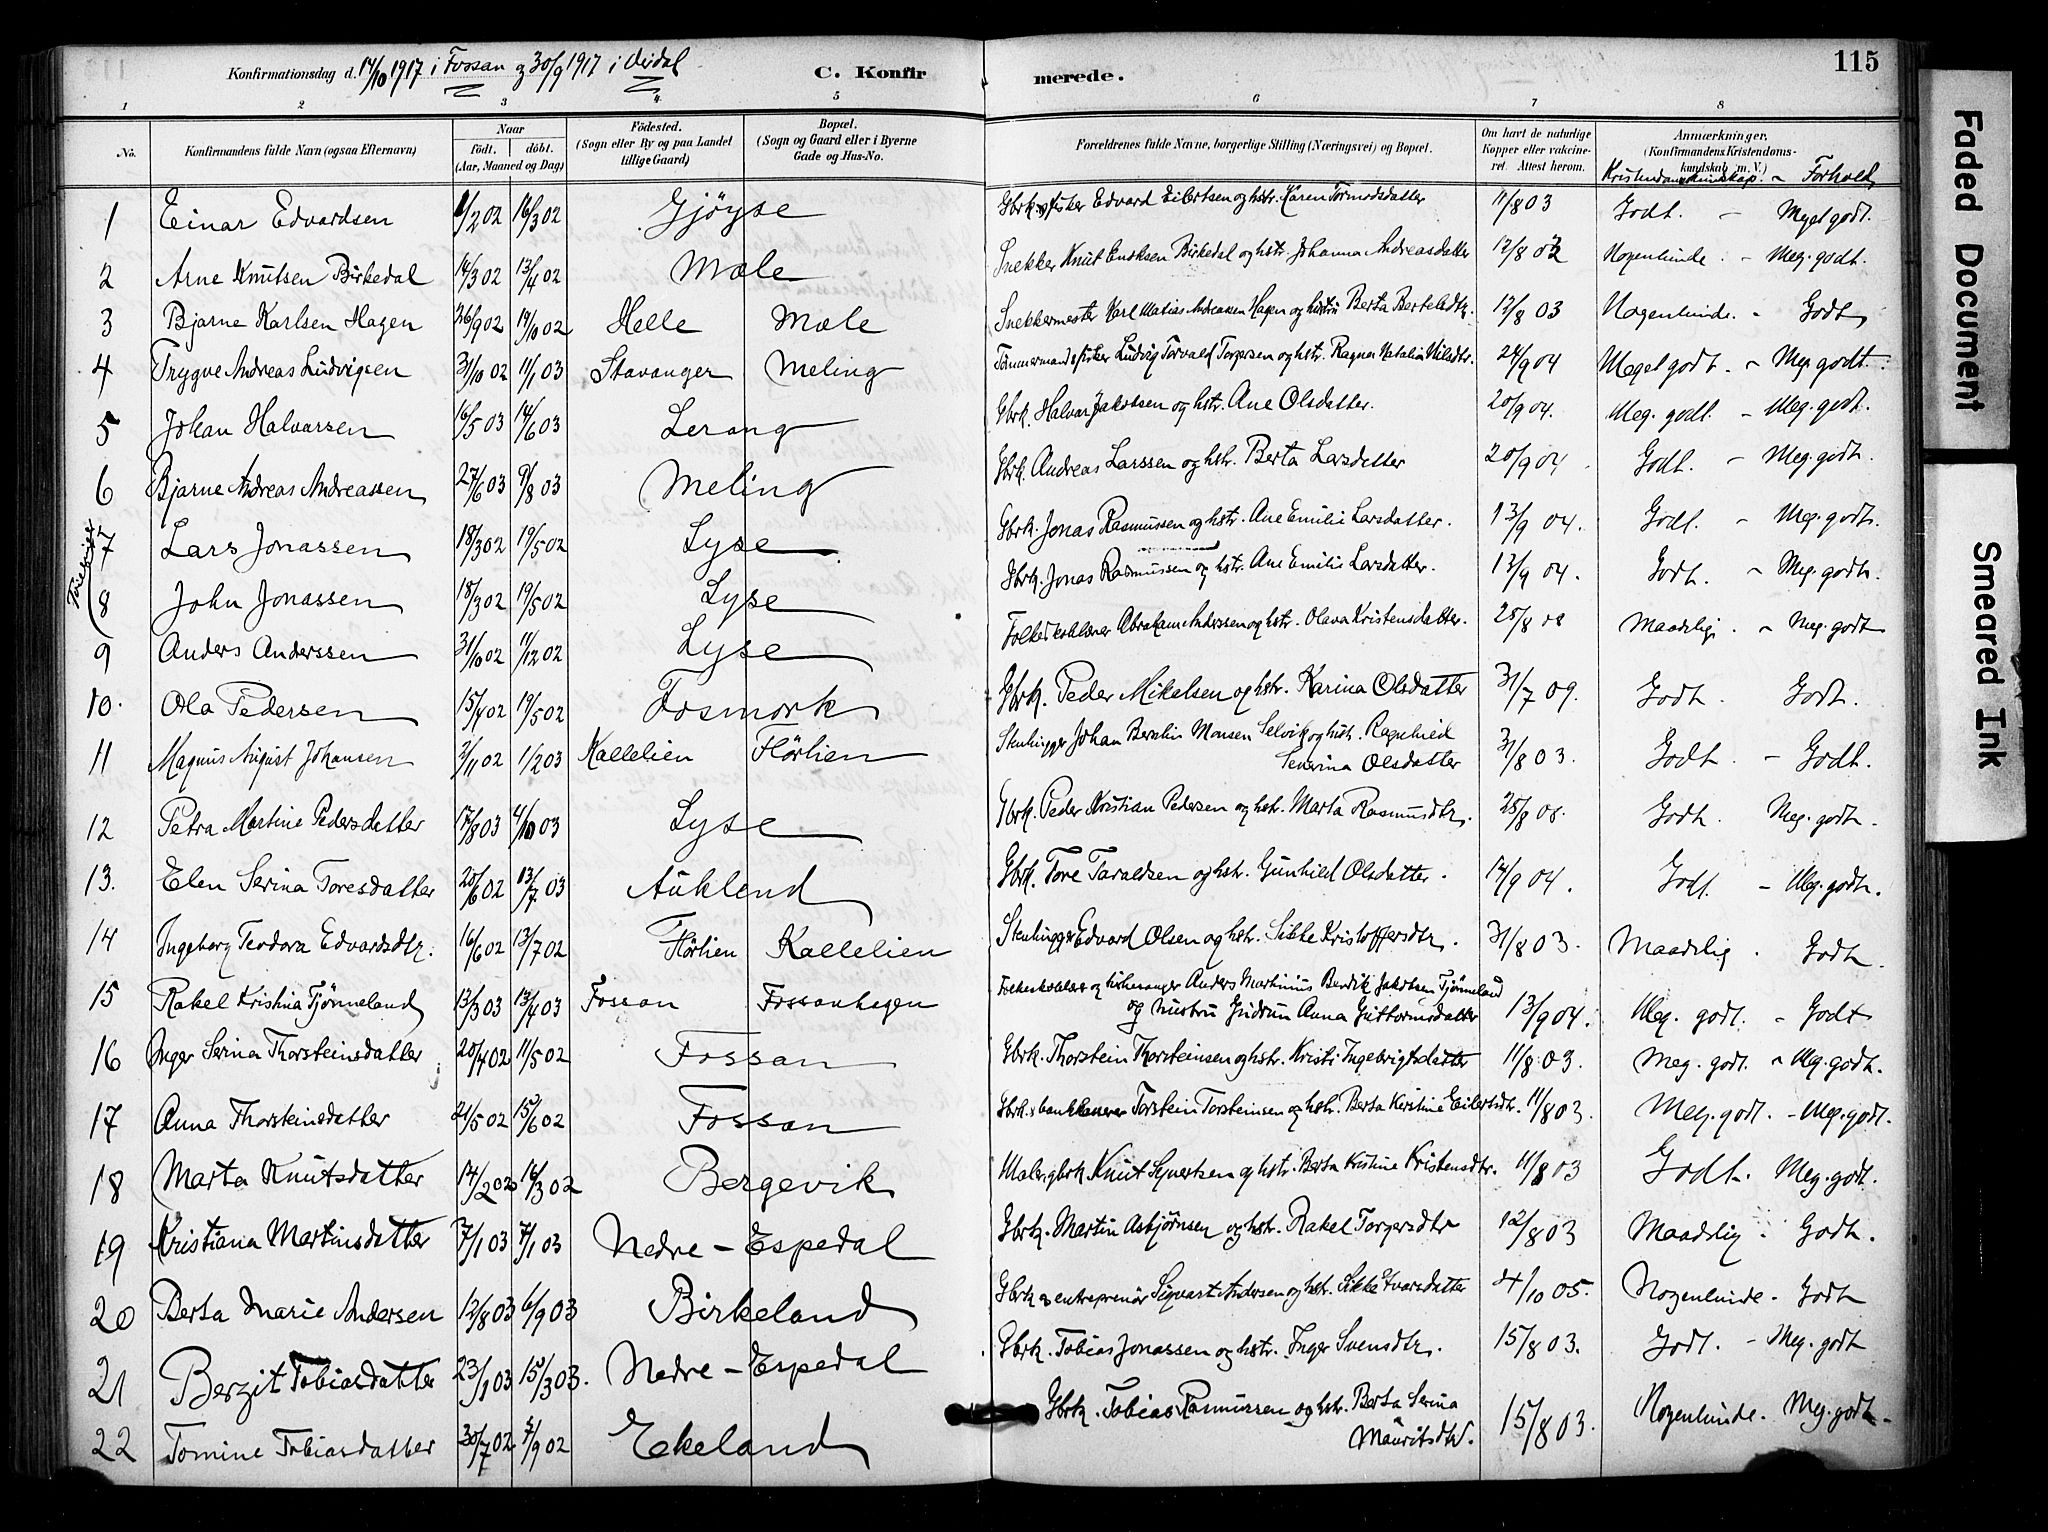 Konfirmationsdag d. 14/10 1917 i Fossan og 30/9 1917 i Dirdal
C. Konfirmerede.
115
1 2 3 4 5 6 7 8
No. Konfirmandens fulde Navn (ogsaa Efternavn) Naar födt. döbt. (Aar, Maaned og Dag) Födested. (Sogn eller By og paa Landet tillige Gaard) Bopæl. (Sogn og Gaard eller i Byerne Gade og Hus-No.) Forældrenes fulde Navne, borgerlige Stilling (Næringsvei) og Bopæl. Om havt de naturlige Kopper eller vakcineret. Attest herom. Anmærkninger. (Konfirmandens Kristendomskundskab m. V.)
Kristendomskundskap. - Forhold
1 Einar Edvardsen 6/2 02 16/3 02 Gjöyse Gbrk. & fisker Edvard Eilertsen og hstr. Karen Tormodsdatter 11/8 03 Godt. - Meget godt.
2 Arne Knutsen Birkedal 14/3 02 13/4 02 Mæle Snekker Knut Enoksen Birkedal og hstr. Johanna Andreasdatter 12/8 03 Nogenlunde. - Meg. godt.
3 Bjarne Karlsen Hagen 26/9 02 19/10 02 Helle Mæle Snekkermester Karl Matias Andreasen Hagen og hustru Berta Bertelsdtr. 12/8 03 Nogenlunde. - Godt
4 Trygve Andreas Ludvigsen 31/10 02 11/1 03 Stavanger Meling Tömmermand & fisker Ludvig Torvald Torgersen og hstr. Ragna Natalia Nilsdtr. 24/9 04 Meget godt. - Meg. godt.
5 Johan Halvarsen 16/5 03 14/6 03 Lerang Gbrk. Halvar Jakobsen og hstr. Ane Olsdatter. 20/9 04. Meg. godt. - Meg. godt.
6 Bjarne Andreas Andreassen 27/6 03 9/8 03 Meling Gbrk. Andreas Larssen og hstr. Berta Larsdatter 20/9 04 Godt. - Meg. godt.
Tvillinger
7 Lars Jonassen 18/3 02 19/5 02 Lyse Gbrk. Jonas Rasmussen og hstr. Ane Emilie Larsdatter. 13/9 04. Godt. - Meg. godt.
8 John Jonassen 18/3 02 19/5 02 Lyse Gbrk. Jonas Rasmussen og hstr. Ane Emilie Larsdatter. 13/9 04. Godt. - Meg. godt.
9 Anders Anderssen 31/10 02 11/12 02 Lyse Folkeskolelærer Abraham Anderssen og hstr. Olava Kristensdatter. 25/8 08 Maadelig. - Meg. godt
10. Ola Pedersen 15/4 02 19/5 02 Fosmork Gbrk. Peder Mikalsen og hstr. Karina Olsdatter 31/7 09. Godt. Godt.
11 Magnus August Johansen 2/11 02 1/2 03 Kallelien Flörlien Stenhugger Johan Bernhin Monsen Selvik og hustr. Ragnhild
Severina Olsdatter 31/8 03. Godt. - Godt.
12 Petra Martine Pedersdatter 17/8 03 4/10 03 Lyse Gbrk. Peder Kristian Pedersen og hstr. Marta Rasmusdtr. 25/8 08. Godt. Meg. godt.
13. Elen Serina Toresdatter 20/6 02 13/7 03 Aukland Gbrk. Tore Taraldsen og hstr. Gunhild Olsdatter. 14/9 04. Godt. - Meg. godt.
14 Ingeborg Teodora Edvardsdtr. 16/6 02 13/7 02 Flörlien Kallelien Stenhugger Edvard Olsen og hstr. Sikke Kristoffersdtr. 31/8 03. Maadelig. Godt.
15 Rakel Kristina Tjönneland 13/3 03 13/4 03 Fossan Fossanhagen Folkeskolelær. og kirkesanger Anders Martinius Bendik Jakobsen Tjönneland
og hustru Gudrun Anna Guttormsdatter 13/9 04. Meg. godt. - Godt
16 Inger Serina Thorsteinsdatter 20/4 02 11/5 02 Fossan Gbrk. Thorstein Thorsteinsen og hstr. Kristi Ingebrigtsdatter 11/8 03. Meg. godt. - Meg. godt.
17 Anna Thorsteinsdatter 21/5 02 15/6 02 Fossan Gbrk. & bankkasserer Torstein Torsteinsen og hstr. Berta Kristine Eilertsdtr. 11/8 03. Meg. godt. - Meg. godt.
18 Marta Knutsdatter 14/2 02 16/3 02 Bergevik Maler, gbrk. Knut Syvertsen og hstr. Berta Kristine Kristensdtr. 11/8 03 Godt. Meg. godt.
19 Kristiana Martinsdatter 7/1 03 7/1 03 Nedre - Espedal Gbrk. Martin Asbjörnsen og hstr. Rakel Torgersdtr 12/8 03 Maadelig. Godt.
20 Berta Marie Andersen 12/8 03 6/9 03 Birkeland Gbrk & entreprenör Sigvart Andersen og hstr. Sikke Ivarsdatter 4/10 05. Nogenlunde. Godt
21 Bergit Tobiasdatter 23/1 03 15/3 03. Nedre - Espedal Gbrk. Tobias Jonassen og hstr. Inger Svensdtr. 15/8 03. Godt. - Meg. godt
22 Tomine Tobiasdatter 30/7 02 7/9 02 Ekeland Gbrk. Tobias Rasmussen og hstr. Berta Serina
Mauritsdtr. 15/8 03. Nogenlunde. Meg. godt.
Faded Document
Smeared Ink